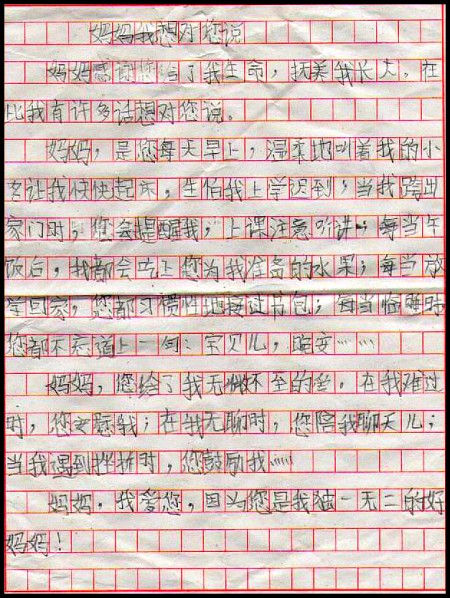 妈妈我想对您说
妈妈感谢您给了我生命，抚养我长大。在
此我有许多话想对您说。
妈妈，是您每天早上，温柔地叫着我的小
名让我快快起床，生怕我上学迟到；当我跨出
家门时，您会提醒我，上课注意听讲；每当午
饭后，我都会吃上您为我准备的水果；每当放
学回家，您都习惯性地接过书包；每当临睡时
您都不忘道上一句：宝贝儿，晚安……
妈妈，您给了我无微不至的爱。在我难过
时，您安慰我；在我无聊时，您陪我聊天儿；
当我遇到挫折时，您鼓励我……
妈妈，我爱您，因为您是我独一无二的好
妈妈！